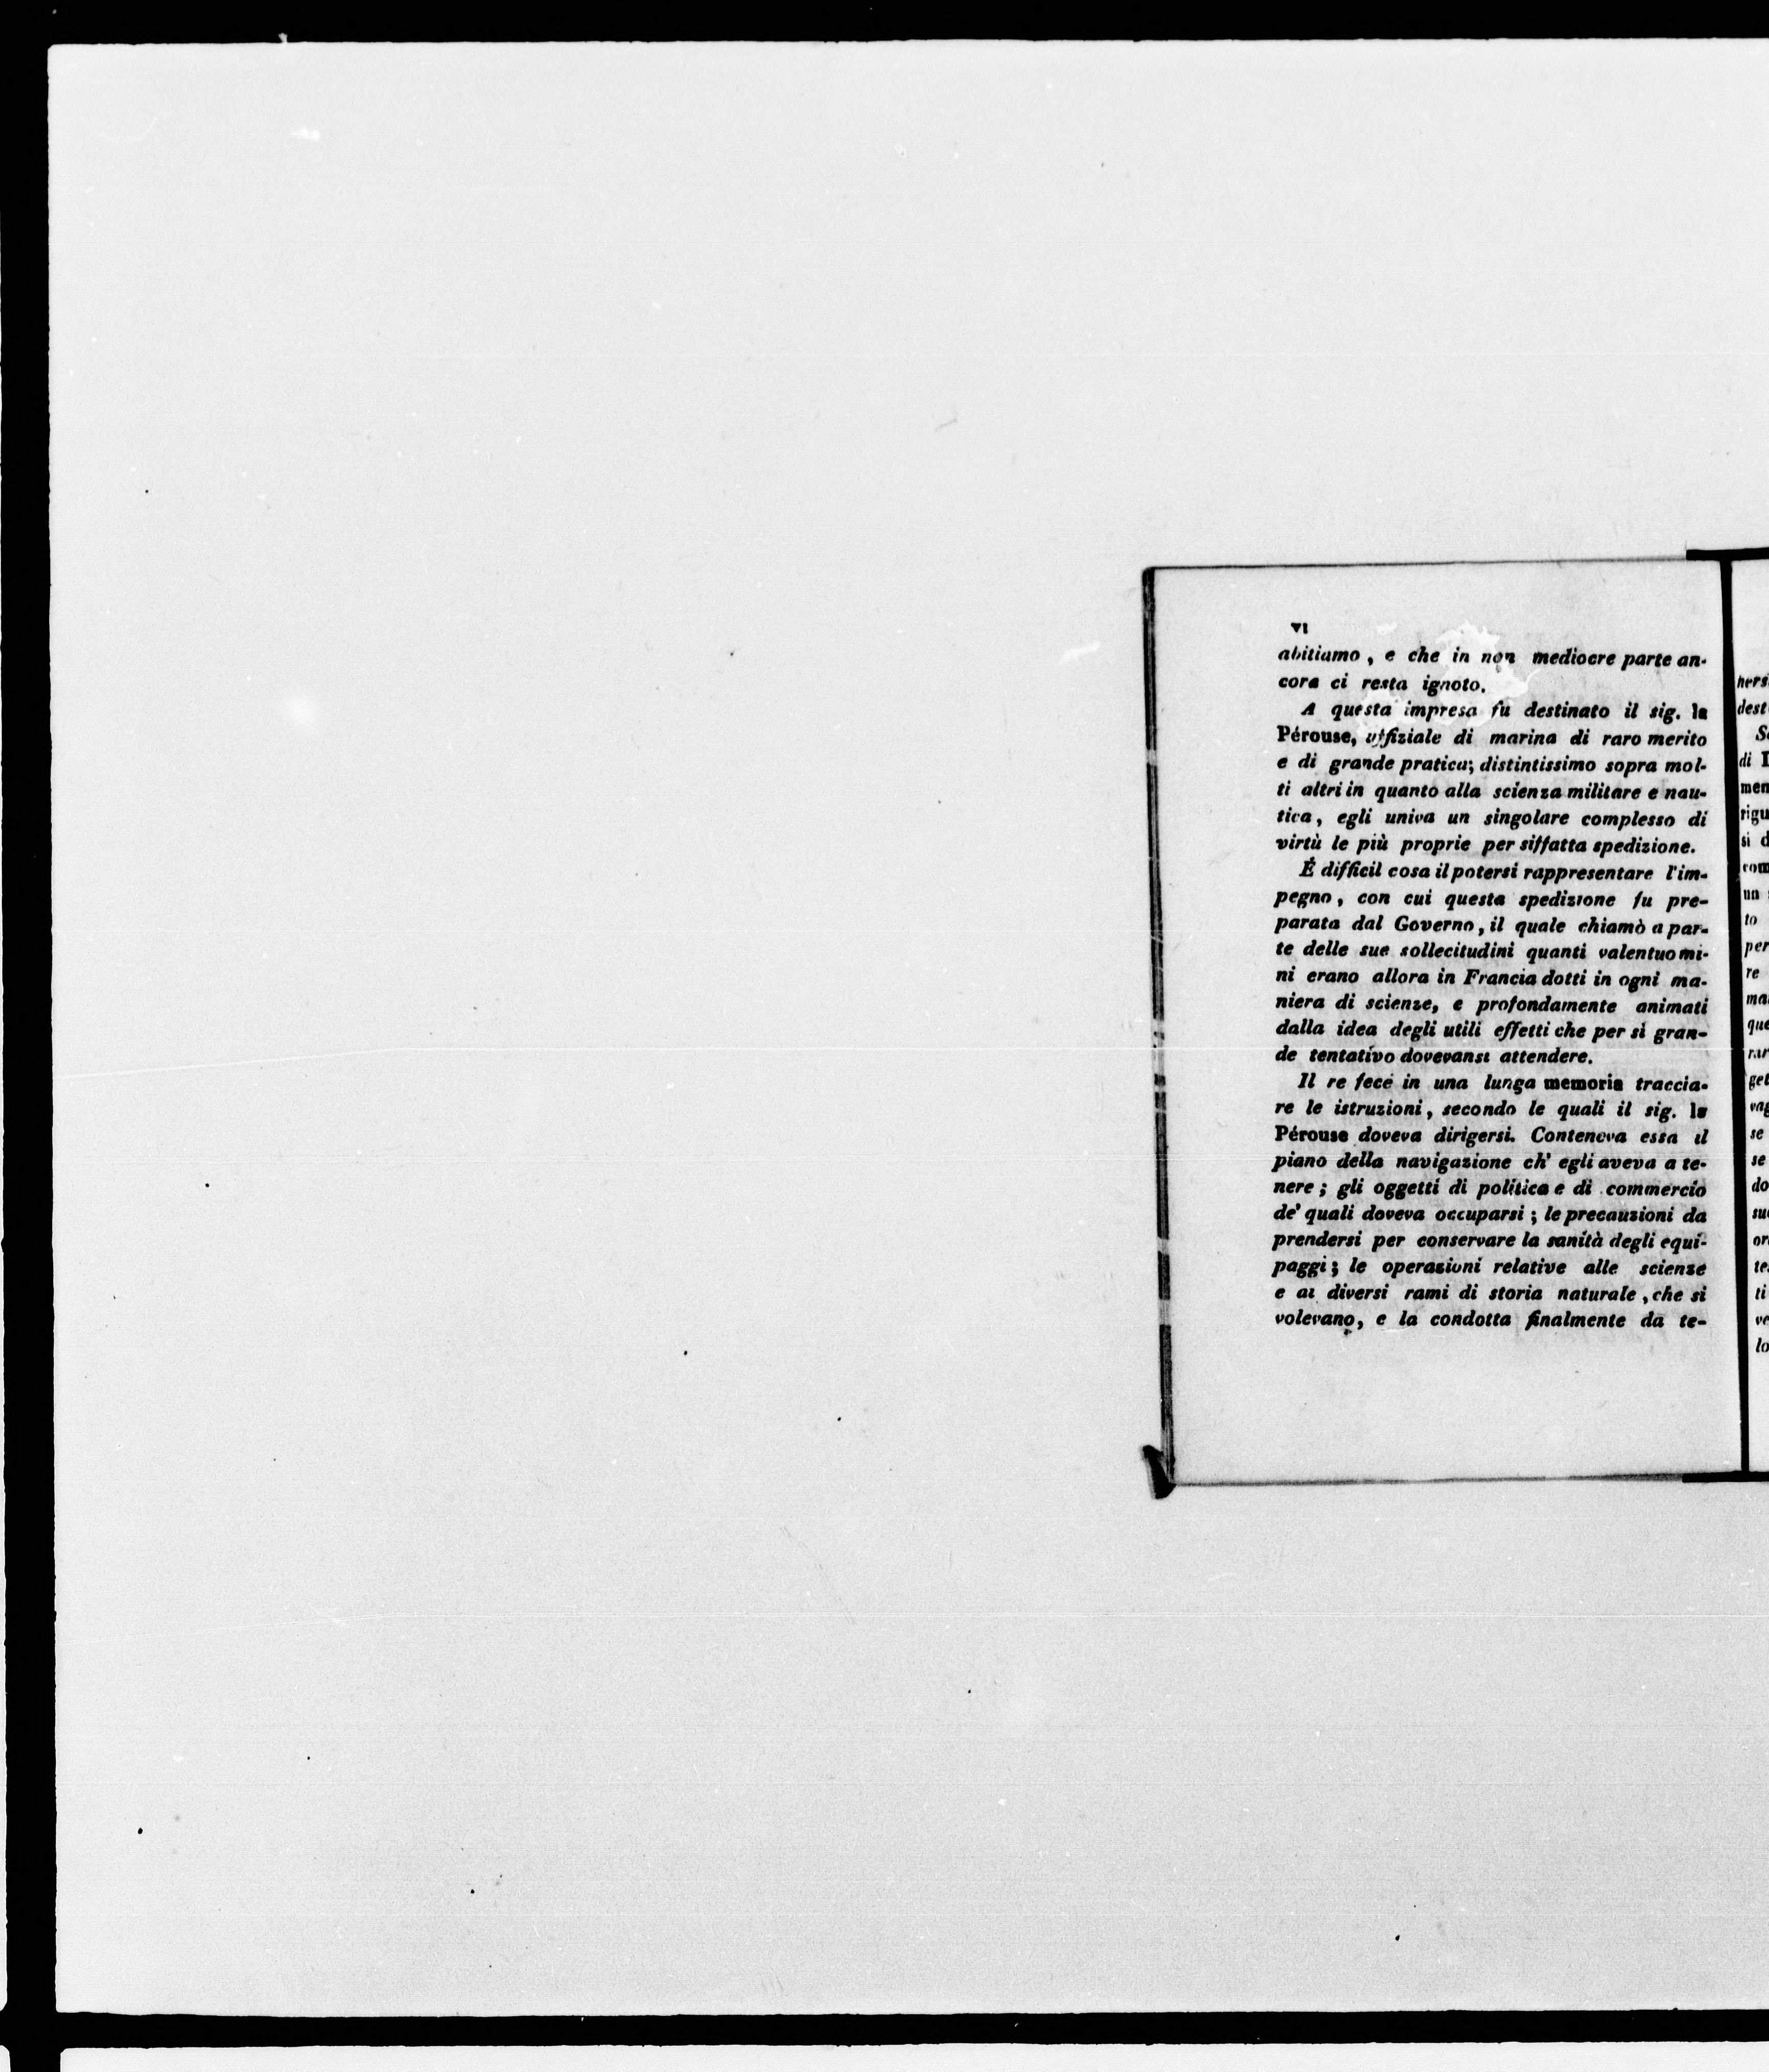 VI
abitiamo, e che in non mediocre parte an-
cora ci resta ignoto.
A questa impresa fu destinato il sig. la
Pérouse, uffiziale di marina di raro merito
e di grande pratica; distintissimo sopra mol-
ti altri in quanto alla scienza militare e nau-
tica, egli univa un singolare complesso di
virtù le più proprie per siffatta spedizione.
É difficil cosa il potersi rappresentare l'im-
pegno, con cui questa spedizione fu pre-
parata dal Governo, il quale chiamò a par-
te delle sue sollecitudini quanti valentuomi-
ni erano allora in Francia dotti in ogni ma-
niera di scienze, e profondamente animati
dalla idea degli utili effetti che per sì gran-
de tentativo dovevansi attendere.
Il re fece in una lunga memoria traccia-
re le istruzioni, secondo le quali il sig. la
Pérouse doveva dirigersi. Conteneva essa il
piano della navigazione ch' egli aveva a te-
nere; gli oggetti di politica e di commercio
de' quali doveva occuparsi; le precauzioni da
prendersi per conservare la sanità degli equi-
paggi; le operazioni relative alle scienze
e ai diversi rami di storia naturale, che si
volevano, e la condotta finalmente da te-
hers
dest
S
di
men
rigu
si
com
un
to
per
re
ma
que
rar
get
vag
se
se
do
su
or
te
ti
ve
lo